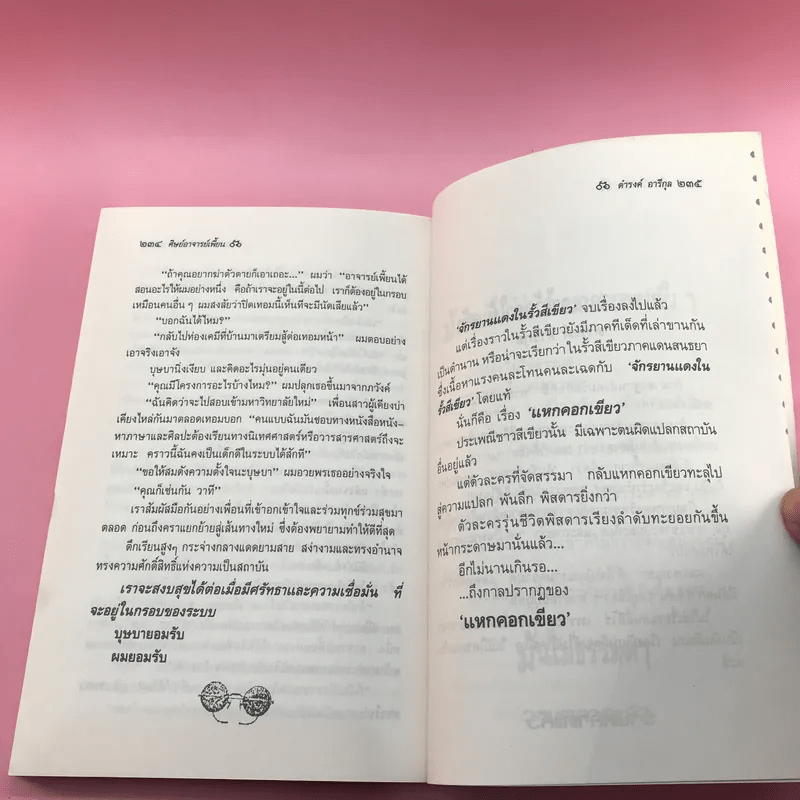 ๒๓๔ ศิษย์อาจารย์เพี้ยน
“ถ้าคุณอยากฆ่าตัวตายก็เอาเถอะ...” ผมว่า “อาจารย์เพี้ยนได้
สอนอะไรให้ผมอย่างหนึ่ง คือถ้าเราจะอยู่ในนี้ต่อไป เราก็ต้องอยู่ในกรอบ
เหมือนคนอื่น ๆ ผมสงสัยว่าปิดเทอมนี้เห็นทีจะมีนัดเสียแล้ว”
“บอกฉันได้ไหม?”
“กลับไปท่องเคมีที่บ้านมาเตรียมสู้ต่อเทอมหน้า” ผมตอบอย่าง
เอาจริงเอาจัง
บุษบานิ่งเงียบ และคิดอะไรมุ่นอยู่คนเดียว
“คุณมีโครงการอะไรบ้างไหม?” ผมปลุกเธอขึ้นมาจากภวังค์
“ฉันคิดว่าจะไปสอบเข้ามหาวิทยาลัยใหม่” เพื่อนสาวผู้เคียงบ่า
เคียงไหล่กันมาตลอดเทอมบอก “คนแบบฉันมันชอบทางหนังสือหนัง-
หาภาษาและศิลปะต้องเรียนทางนิเทศศาสตร์หรือวารสารศาสตร์ถึงจะ
เหมาะ คราวนี้ฉันคงเป็นเด็กดีในระบบได้สักที”
“ขอให้สมดังความตั้งใจนะบุษบา” ผมอวยพรเธออย่างจริงใจ
“คุณก็เช่นกัน วาที”
เราสัมผัสมือกันอย่างเพื่อนที่เข้าอกเข้าใจและร่วมทุกข์ร่วมสุขมา
ตลอด ก่อนถึงคราแยกย้ายสู่เส้นทางใหม่ ซึ่งต้องพยายามทำให้ดีที่สุด
ตึกเรียนสูงๆ กระจ่างกลางแดดยามสาย สง่างามและทรงอำนาจ
ทรงความศักดิ์สิทธิ์แห่งความเป็นสถาบัน
เราจะสงบสุขได้ต่อเมื่อมีศรัทธาและความเชื่อมั่น ที่
จะอยู่ในกรอบของระบบ
บุษบายอมรับ
ผมยอมรับ
ดำรงค์ อารีกุล ๒๓๕
‘จักรยานแดงในรั้วสีเขียว’ จบเรื่องลงไปแล้ว
แต่เรื่องราวในรั้วสีเขียวยังมีภาคทีเด็ดที่เล่าขานกัน
เป็นตำนาน หรือน่าจะเรียกว่าในรั้วสีเขียวภาคแดนสนธยา
ซึ่งเนื้อหาแรงคนละโทนคนละเฉดกับ ‘จักรยานแดงใน
รั้วสีเขียว’ โดยแท้
นั่นก็คือ เรื่อง ‘แหกคอกเขียว’
ประเพณีชาวสีเขียวนั้น มีเฉพาะตนผิดแปลกสถาบัน
อื่นอยู่แล้ว
แต่ตัวละครที่จัดสรรมา กลับแหกคอกเขียวทะลุไป
สู่ความแปลก พันลึก พิสดารยิ่งกว่า
ตัวละครรุ่นชีวิตพิสดารเรียงลำดับทะยอยกันขึ้น
หน้ากระดาษมานั่นแล้ว...
อีกไม่นานเกินรอ...
...ถึงกาลปรากฏของ
‘แหกคอกเขียว’